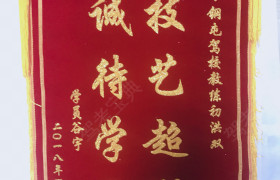 钢屯驾校教练初洪双
技艺超
诚待学
学员谷宇
二〇一八年